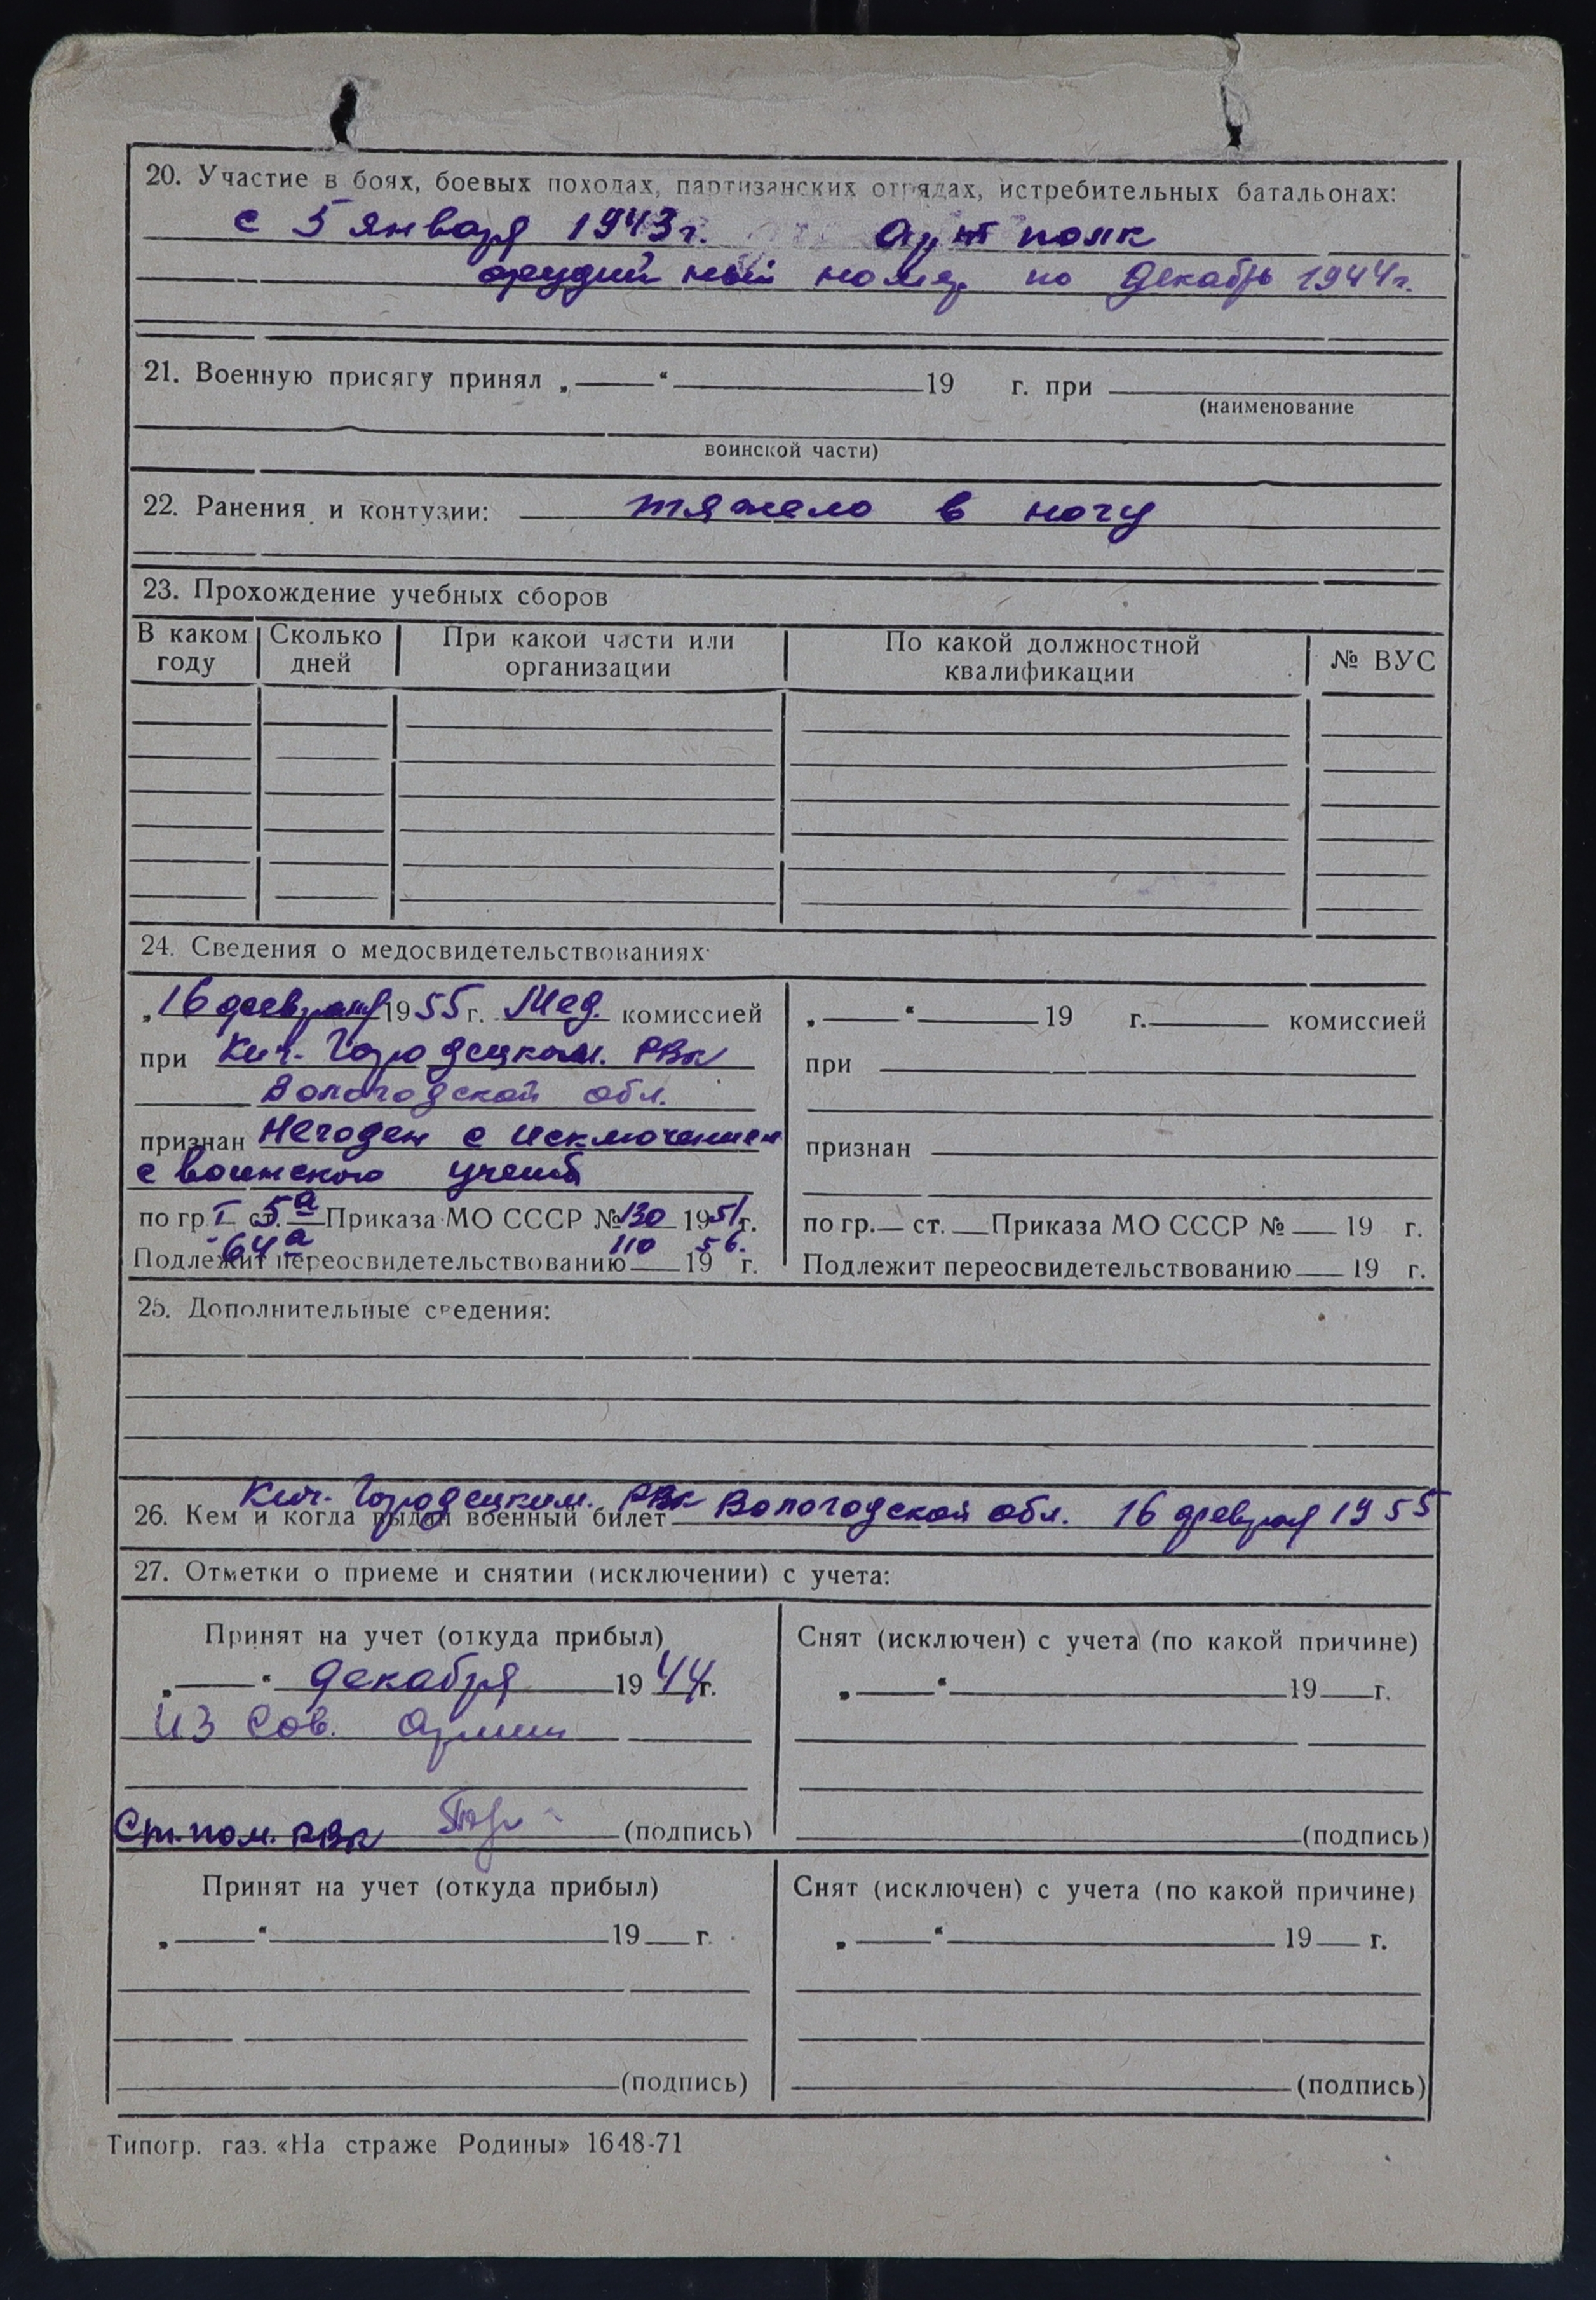 20. Участие в боях, боевых походах, партизанских отрядах, истребительных батальонах:
с 5 января 1943 г. Арт полк
орудийный номер по декабрь 1944 г.
21. Военную присягу принял „ “ 19 г. при
(наименование
воинской части)
22. Ранения и контузии: тяжело в ногу
23. Прохождение учебных сборов
В каком году Сколько дней При какой части или организации По какой должностной квалификации № ВУС
24. Сведения о медосвидетельствованиях
„16 февраля 1955 г. Мед. комиссией
при Кич. Городецким. РВк
Вологодской обл.
признан Негоден с исключением
с воинского учета
по гр. I ст. 5а Приказа МО СССР № 130 1951 г.
64а 110 56.
Подлежит переосвидетельствованию 19 г.
„ “ 19 г. комиссией
при
признан
по гр. ст. Приказа МО СССР № 19 г.
Подлежит переосвидетельствованию 19 г.
25. Дополнительные сведения:
26. Кем и когда выдан военный билет Кич. Городецким. РВк Вологодской обл. 16 февраля 1955
27. Отметки о приеме и снятии (исключении) с учета:
Принят на учет (откуда прибыл)
„ “ декабря 1944 г.
из Сов. Армии
Ст. пом. РВк (подпись)
Снят (исключен) с учета (по какой причине)
„ “ 19 г.
(подпись)
Принят на учет (откуда прибыл)
„ “ 19 г.
(подпись)
Снят (исключен) с учета (по какой причине)
„ “ 19 г.
(подпись)
Типогр. газ. «На страже Родины» 1648-71